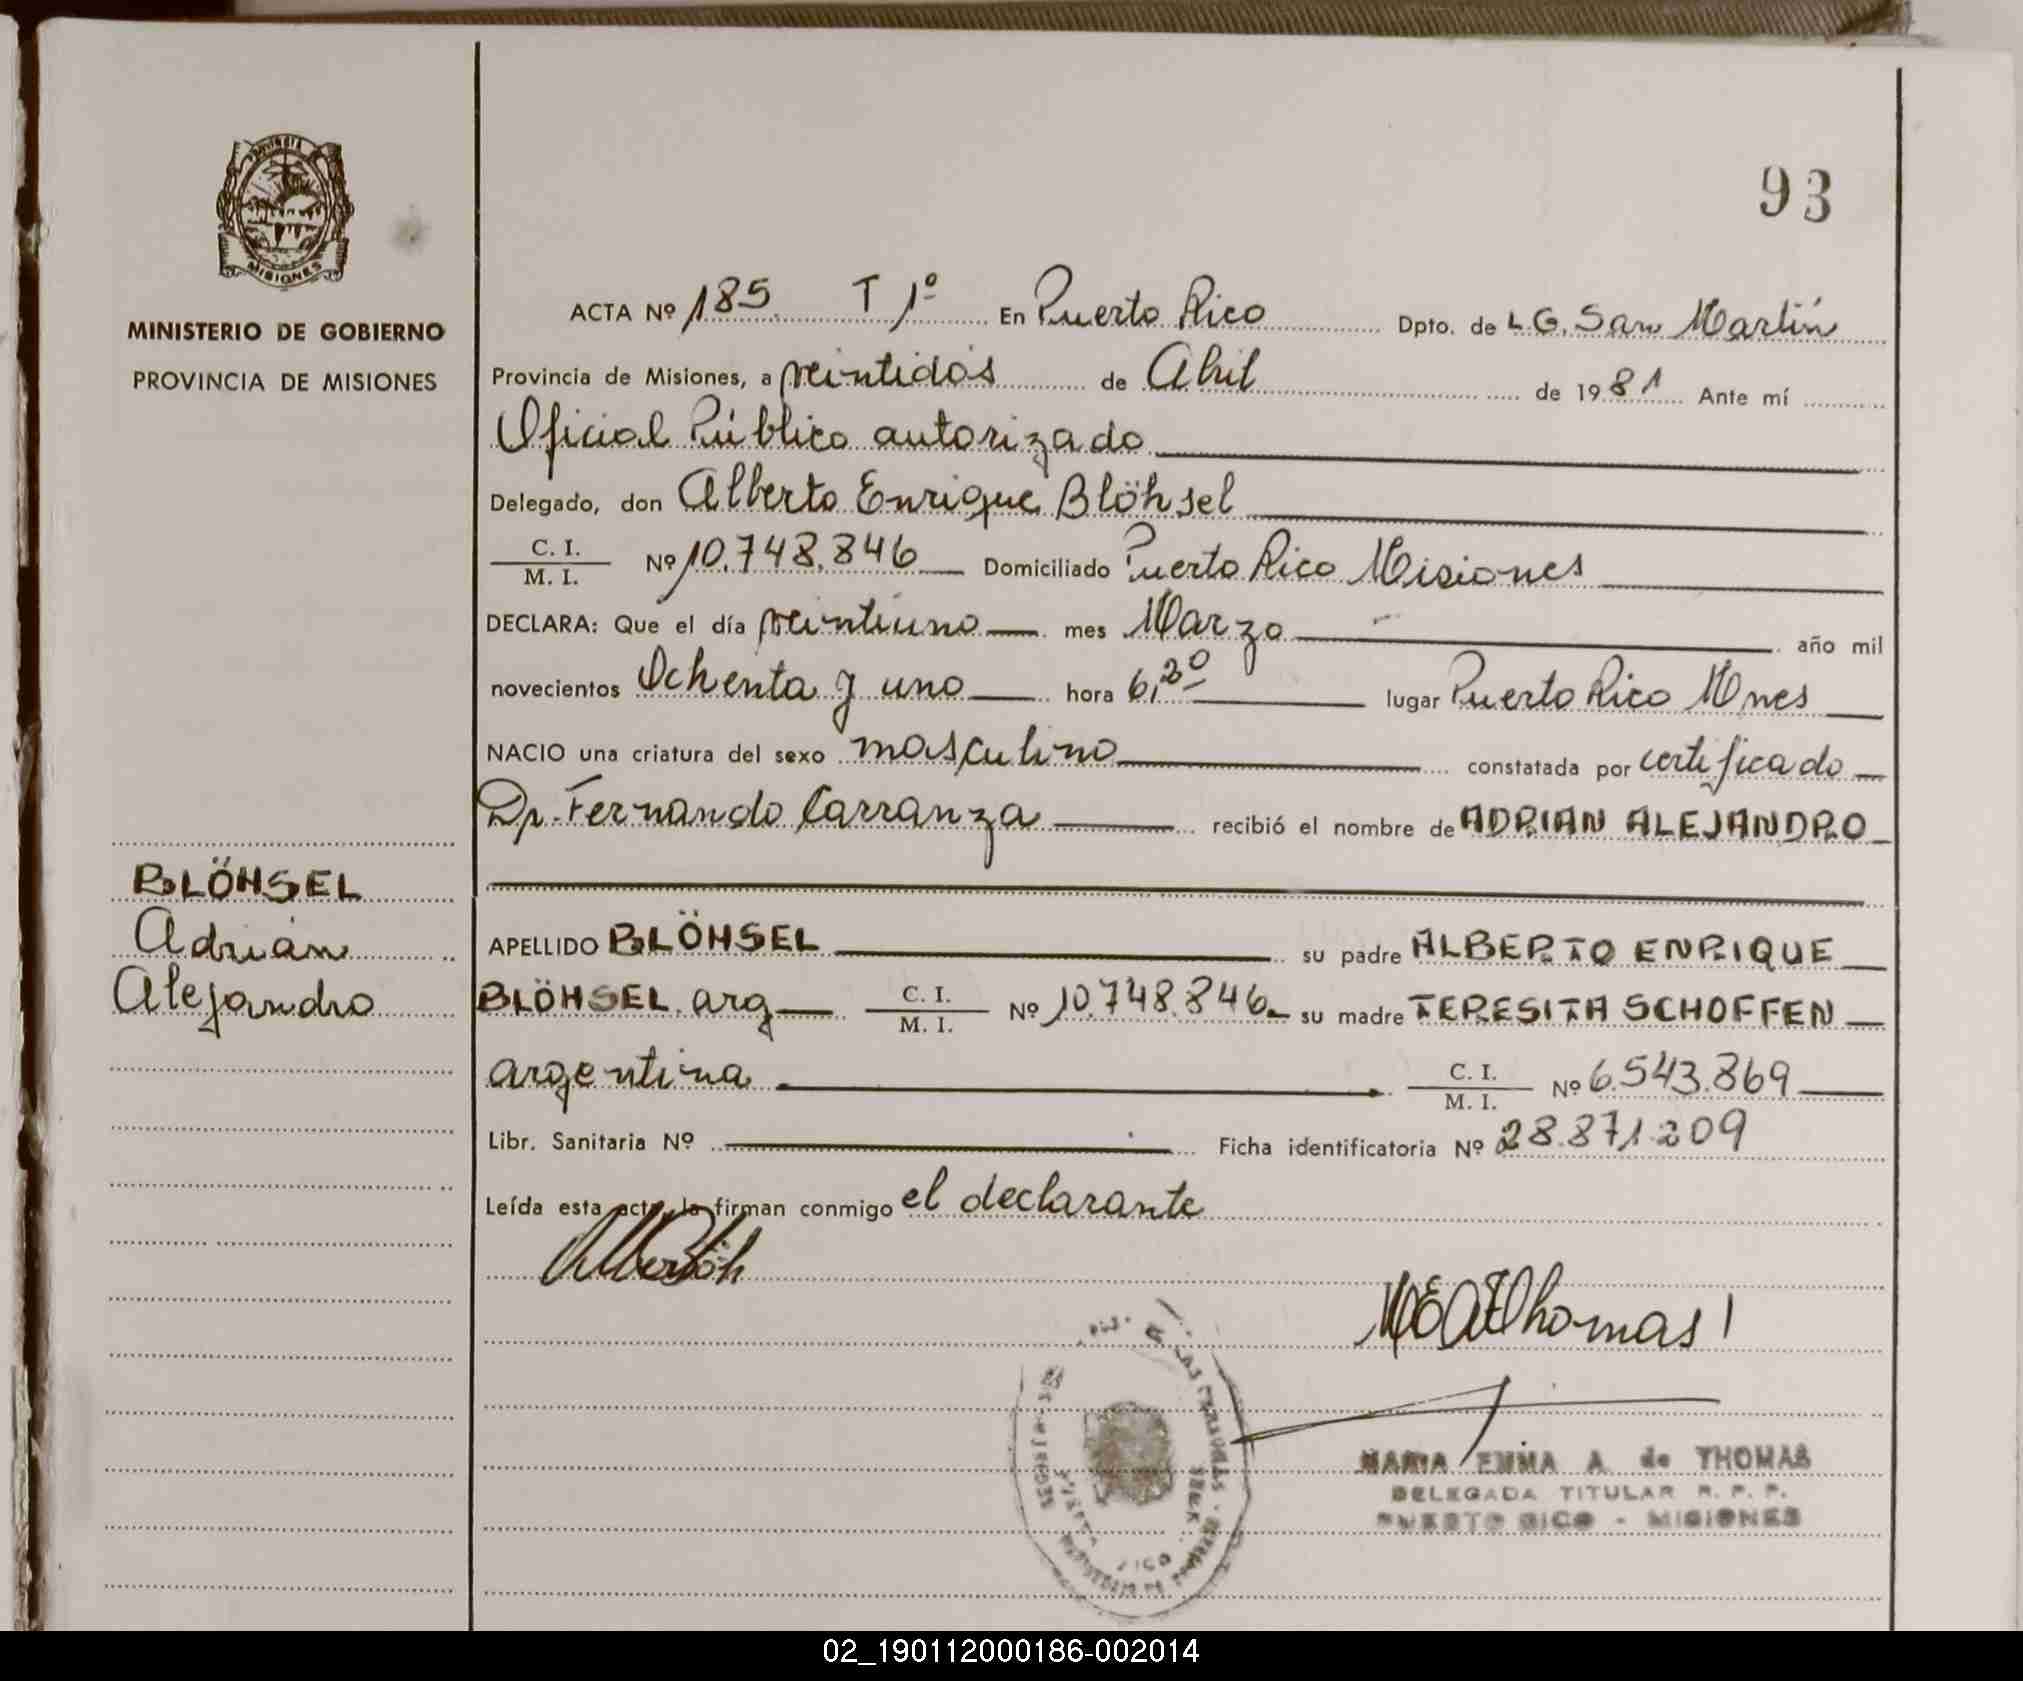 PROVINCIA
MISIONES
MINISTERIO DE GOBIERNO
PROVINCIA DE MISIONES
BLÖHSEL
Adrián
Alejandro
93
ACTA Nº 185. T 1º En Puerto Rico Dpto. de L.G. San Martín
Provincia de Misiones, a veintidós de Abril de 1981 Ante mí
Oficial Público autorizado
Delegado, don Alberto Enrique Blöhsel
C. I. / M. I. Nº 10.748.846 Domiciliado Puerto Rico Misiones
DECLARA: Que el día veintiuno mes Marzo año mil
novecientos Ochenta y uno hora 6,20 lugar Puerto Rico Mnes
NACIO una criatura del sexo masculino constatada por certificado
Dr. Fernando Carranza recibió el nombre de ADRIAN ALEJANDRO
APELLIDO BLÖHSEL su padre ALBERTO ENRIQUE
BLÖHSEL. arg C. I. / M. I. Nº 10.748.846 su madre TERESITA SCHOFFEN
argentina C. I. / M. I. Nº 6.543.869
Libr. Sanitaria Nº Ficha identificatoria Nº 28.871.209
Leída esta acta, la firman conmigo el declarante
Thomas
MARIA EMMA A. de THOMAS
DELEGADA TITULAR R. P. P.
PUERTO RICO - MISIONES
02_190112000186-002014